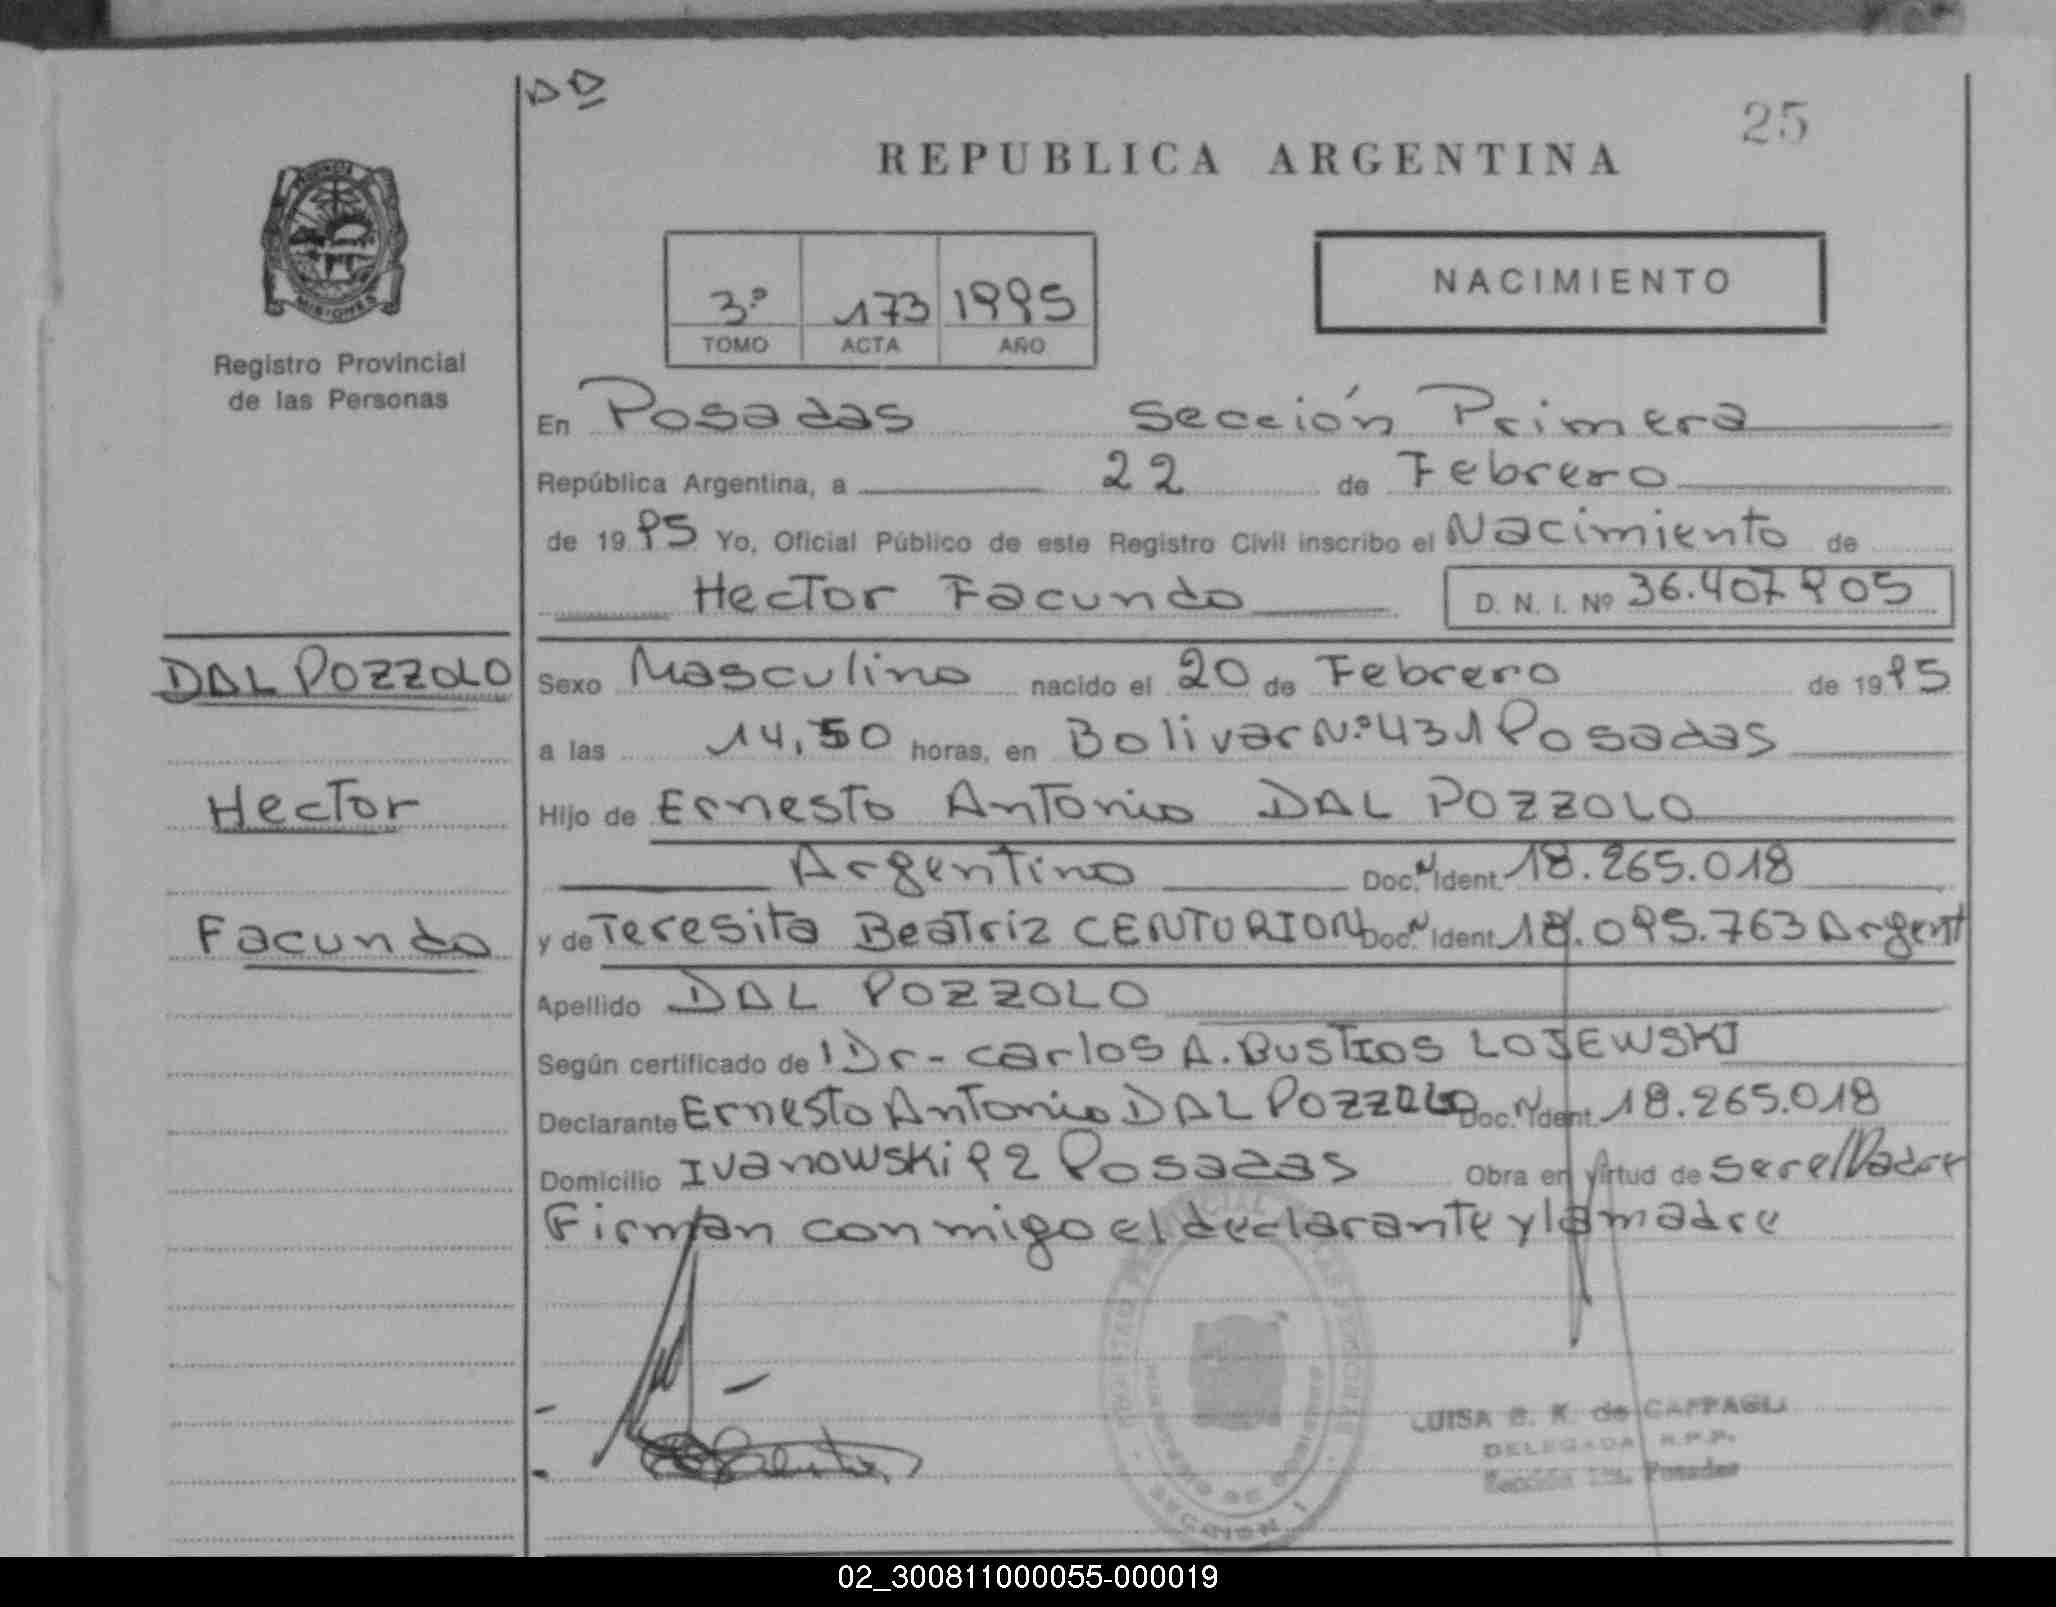 DD
25
REPUBLICA ARGENTINA
MISIONES
Registro Provincial
de las Personas
3º 173 1995
TOMO ACTA AÑO
NACIMIENTO
En Posadas Sección Primera
República Argentina, a 22 de Febrero
de 1995 Yo, Oficial Público de este Registro Civil inscribo el Nacimiento de
Hector Facundo D. N. I. Nº 36.407.905
DAL POZZOLO
Sexo Masculino nacido el 20 de Febrero de 1995
a las 14,50 horas, en Bolivar Nº 431 Posadas
Hector
Hijo de Ernesto Antonio DAL POZZOLO
Argentino Doc. N Ident. 18.265.018
Facundo
y de Teresita Beatriz CENTURION Doc. N Ident. 18.095.763 Argent
Apellido DAL POZZOLO
Según certificado de Dr- Carlos A. BUSTIOS LOJEWSKI
Declarante Ernesto Antonio DAL POZZOLO Doc. N Ident. 18.265.018
Domicilio Ivanowski 92 Posadas Obra en virtud de ser el Padre
Firman conmigo el declarante y la madre
LUISA B. K. de CAFFAGLI
DELEGADA R.P.P.
Sección 1ra. Posadas
SECCION 1
02_300811000055-000019